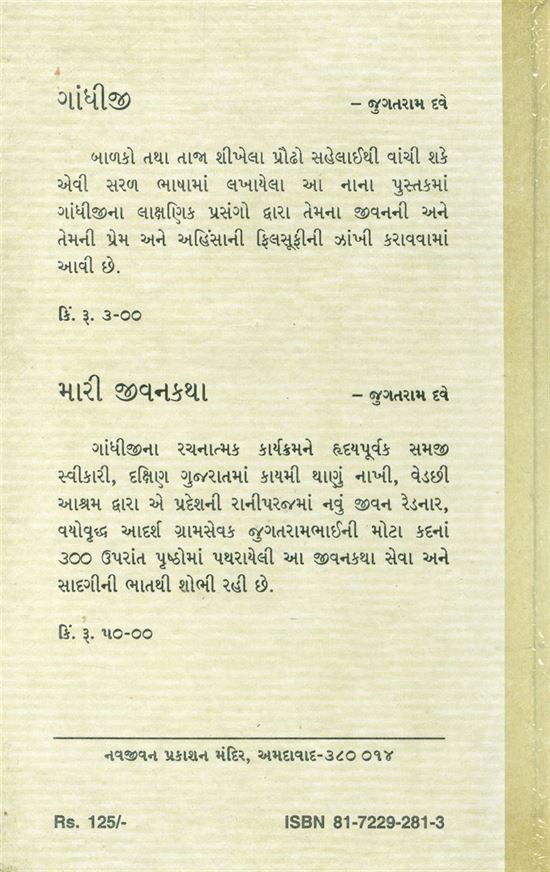 ગાંધીજી – જુગતરામ દવે
બાળકો તથા તાજા શીખેલા પ્રૌઢો સહેલાઈથી વાંચી શકે
એવી સરળ ભાષામાં લખાયેલા આ નાના પુસ્તકમાં
ગાંધીજીના લાક્ષણિક પ્રસંગો દ્વારા તેમના જીવનની અને
તેમની પ્રેમ અને અહિંસાની ફિલસૂફીની ઝાંખી કરાવવામાં
આવી છે.
કિં. રૂ. ૩-૦૦
મારી જીવનકથા – જુગતરામ દવે
ગાંધીજીના રચનાત્મક કાર્યક્રમને હૃદયપૂર્વક સમજી
સ્વીકારી, દક્ષિણ ગુજરાતમાં કાયમી થાણું નાખી, વેડછી
આશ્રમ દ્વારા એ પ્રદેશની રાનીપરજમાં નવું જીવન રેડનાર,
વયોવૃદ્ધ આદર્શ ગ્રામસેવક જુગતરામભાઈની મોટા કદનાં
૩૦૦ ઉપરાંત પૃષ્ઠોમાં પથરાયેલી આ જીવનકથા સેવા અને
સાદગીની ભાતથી શોભી રહી છે.
કિં. રૂ. ૫૦-૦૦
નવજીવન પ્રકાશન મંદિર, અમદાવાદ-૩૮૦ ૦૧૪
Rs. 125/- ISBN 81-7229-281-3